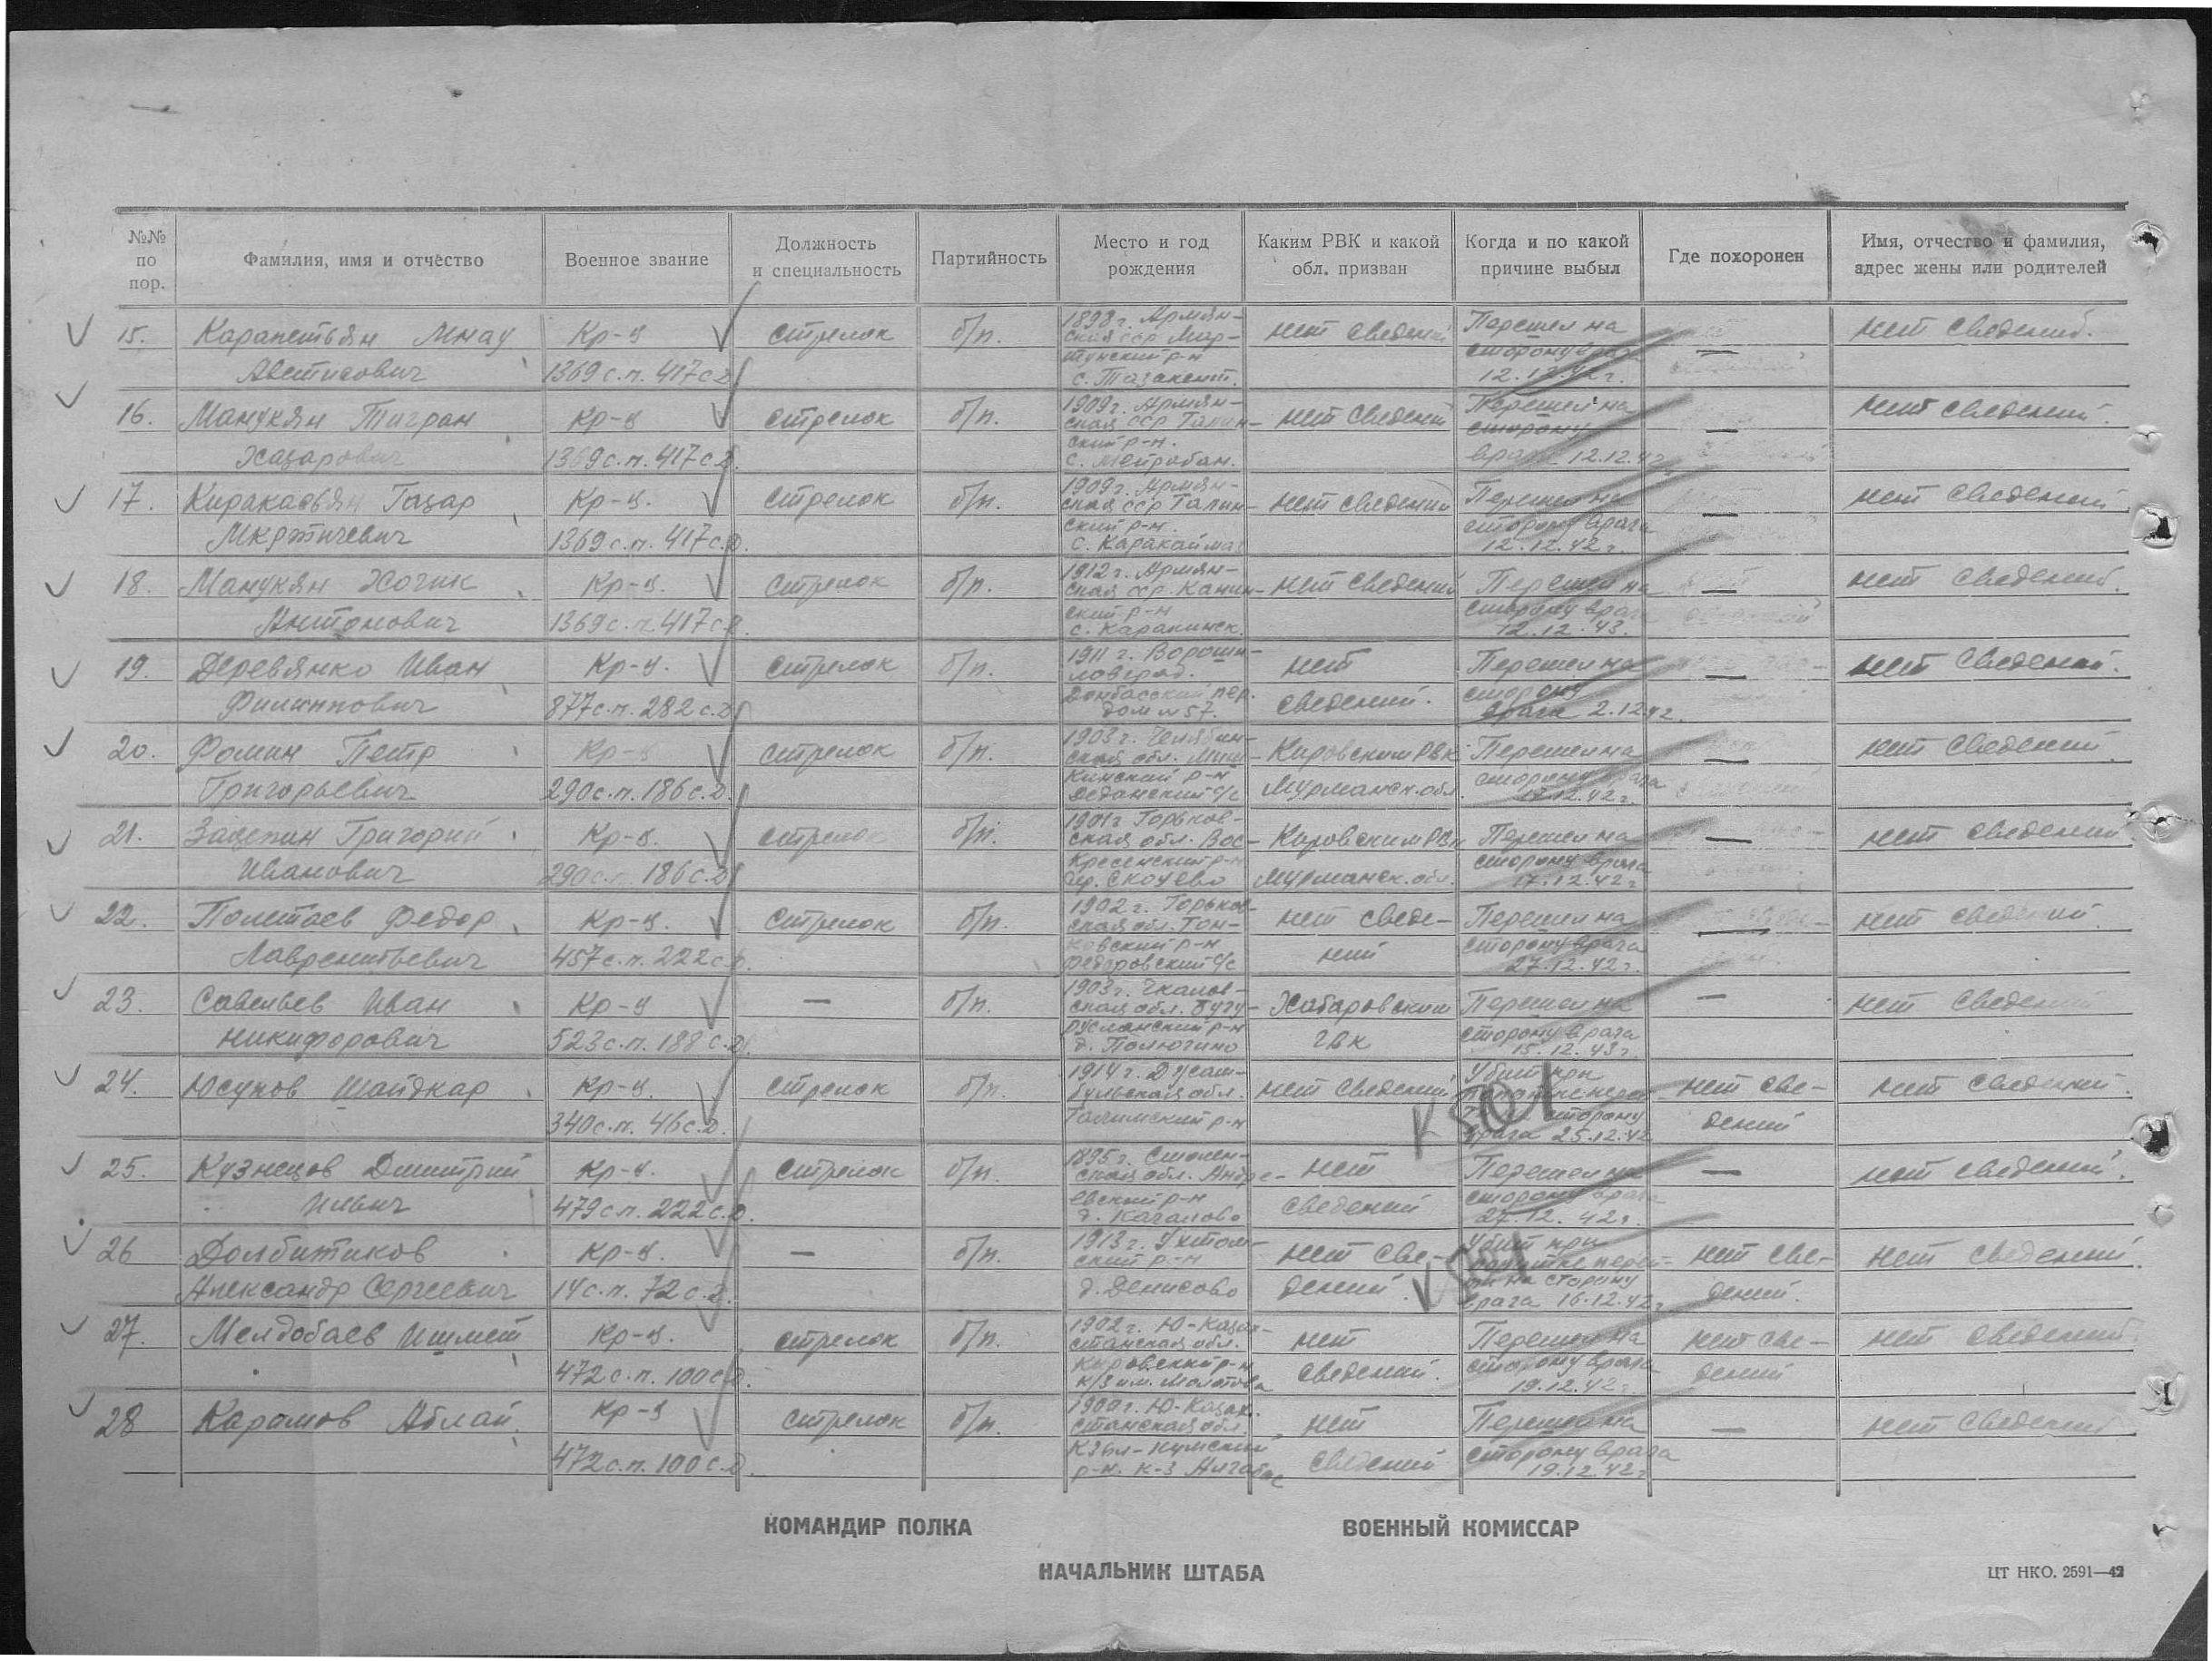 №№ по пор.
Фамилия, имя и отчество
Военное звание
Должность и специальность
Партийность
Место и год рождения
Каким РВК и какой обл. призван
Когда и по какой причине выбыл
Где похоронен
Имя, отчество и фамилия, адрес жены или родителей
15. Карапетьян Мнау Кр-ц стрелок б/п. 1898 г. Армян- нет сведений Перешел на — нет сведений.
Аветисович 1369 с.п. 417 с.д. ская сср Мар- сторону врага
тунский р-н 12.12.42 г.
с. Тазакент.
16. Манукян Тигран Кр-ц стрелок б/п. 1909 г. Армян- нет сведений Перешел на — нет сведений.
Хазарович 1369 с.п. 417 с.д. ская сср Талин- сторону
ский р-н. врага 12.12.42
с. Мейробан.
17. Киракосьян Газар Кр-ц. стрелок б/п. 1909 г. Армян- нет сведений Перешел на — нет сведений
Мкртичевич 1369 с.п. 417 с.д. ская сср Талин- сторону врага
ский р-н. 12.12.42 г.
с.
18. Манукян Хочик Кр-ц. стрелок б/п. 1912 г. Армян- нет сведений Перешел на — нет сведений.
Антонович 1369 с.п. 417 с.д. ская сср сторону врага
ский р-н 12.12.43.
с.
19. Деревянко Иван Кр-ц. стрелок б/п. 1911 г. Вороши- нет Перешел на — нет сведений.
Филиппович 877 с.п. 282 с.д. ловград. сведений. сторону
Донбасский пер. врага 2.12.42.
дом № 57.
20. Фомин Петр Кр-ц стрелок б/п. 1903 г. Челябин- Кировским РВК Перешел на — нет сведений
Григорьевич 290 с.п. 186 с.д. ская обл. Миш- Мурманск. обл. сторону врага
кинский р-н 17.12.42 г.
с/с
21. Зацепин Григорий Кр-ц. стрелок б/п. 1901 г. Горьков- Кировским РВК Перешел на — нет сведений
Иванович 290 с.п. 186 с.д. ская обл. Вос- Мурманск. обл. сторону врага
кресенский р-н 17.12.42 г.
22. Полетаев Федор Кр-ц. стрелок б/п. 1902 г. Горьков- нет сведе- Перешел на — нет сведений
Лаврентьевич 457 с.п. 222 с.д. ская обл. Тон- ний сторону врага
ковский р-н 27.12.42 г.
Федоровский с/с
23. Савельев Иван Кр-ц — б/п. 1903 г. Чкалов- Хабаровским Перешел на — нет сведений
Никифорович 523 с.п. 188 с.д. ская обл. Бугу- ГВК сторону врага
русланский р-н 15.12.43 г.
д. Полютино
24. Юсупов Шайдкар Кр-ц. стрелок б/п. 1914 г. нет сведений Убит при нет све- нет сведений.
340 с.п. 46 с.д. обл. попытке дений
р-н сторону
врага 25.12.42
К 501
25. Кузнецов Дмитрий Кр-ц. стрелок б/п. 1895 г. Смолен- нет Перешел на — нет сведений.
Ильич 479 с.п. 222 с.д. ская обл. Андре- сведений сторону врага
евский р-н 27.12.42 г.
д. Качалово
26 Долбитиков Кр-ц. — б/п. 1913 г. Ухтом- нет све- Убит при нет све- нет сведений.
Александр Сергеевич 14 с.п. 72 с.д. ский р-н дений. попытке перей- дений.
д. Денисово ти на сторону
врага 16.12.42 г.
27. Мелдобаев Ишмет Кр-ц. стрелок б/п. 1902 г. Ю-Казах- нет Перешел на нет све- нет сведений.
472 с.п. 100 с.д. станская обл. сведений. сторону врага дений
Кировский р-н 19.12.42 г
к/з им. Молотова
28 Карамов Аблай Кр-ц стрелок б/п. 1909 г. Ю-Казах. нет Перешел на — нет сведений
472 с.п. 100 с.д. станская обл. сведений сторону врага
Кзыл-Кумский 19.12.42 г
р-н. к-з Алгабас
КОМАНДИР ПОЛКА ВОЕННЫЙ КОМИССАР
НАЧАЛЬНИК ШТАБА
ЦТ НКО. 2591—42